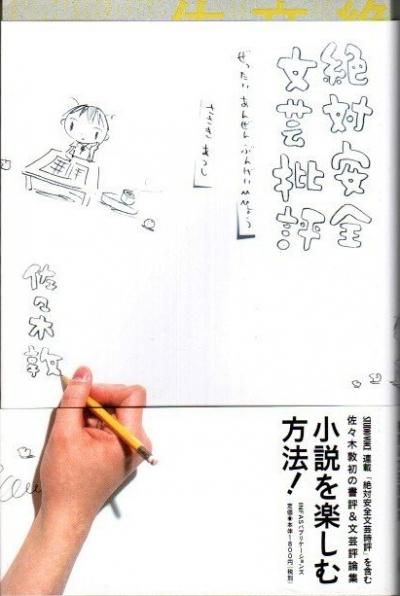 絶対安全
文芸批評
ぜったい あんぜん ぶんげいひひょう
ささき あつし
佐々木敦
連載「絶対安全文芸時評」を含む
佐々木敦初の書評&文芸評論集
小説を楽しむ
方法!
INFASパブリケーションズ
定価●本体1800円(税別)